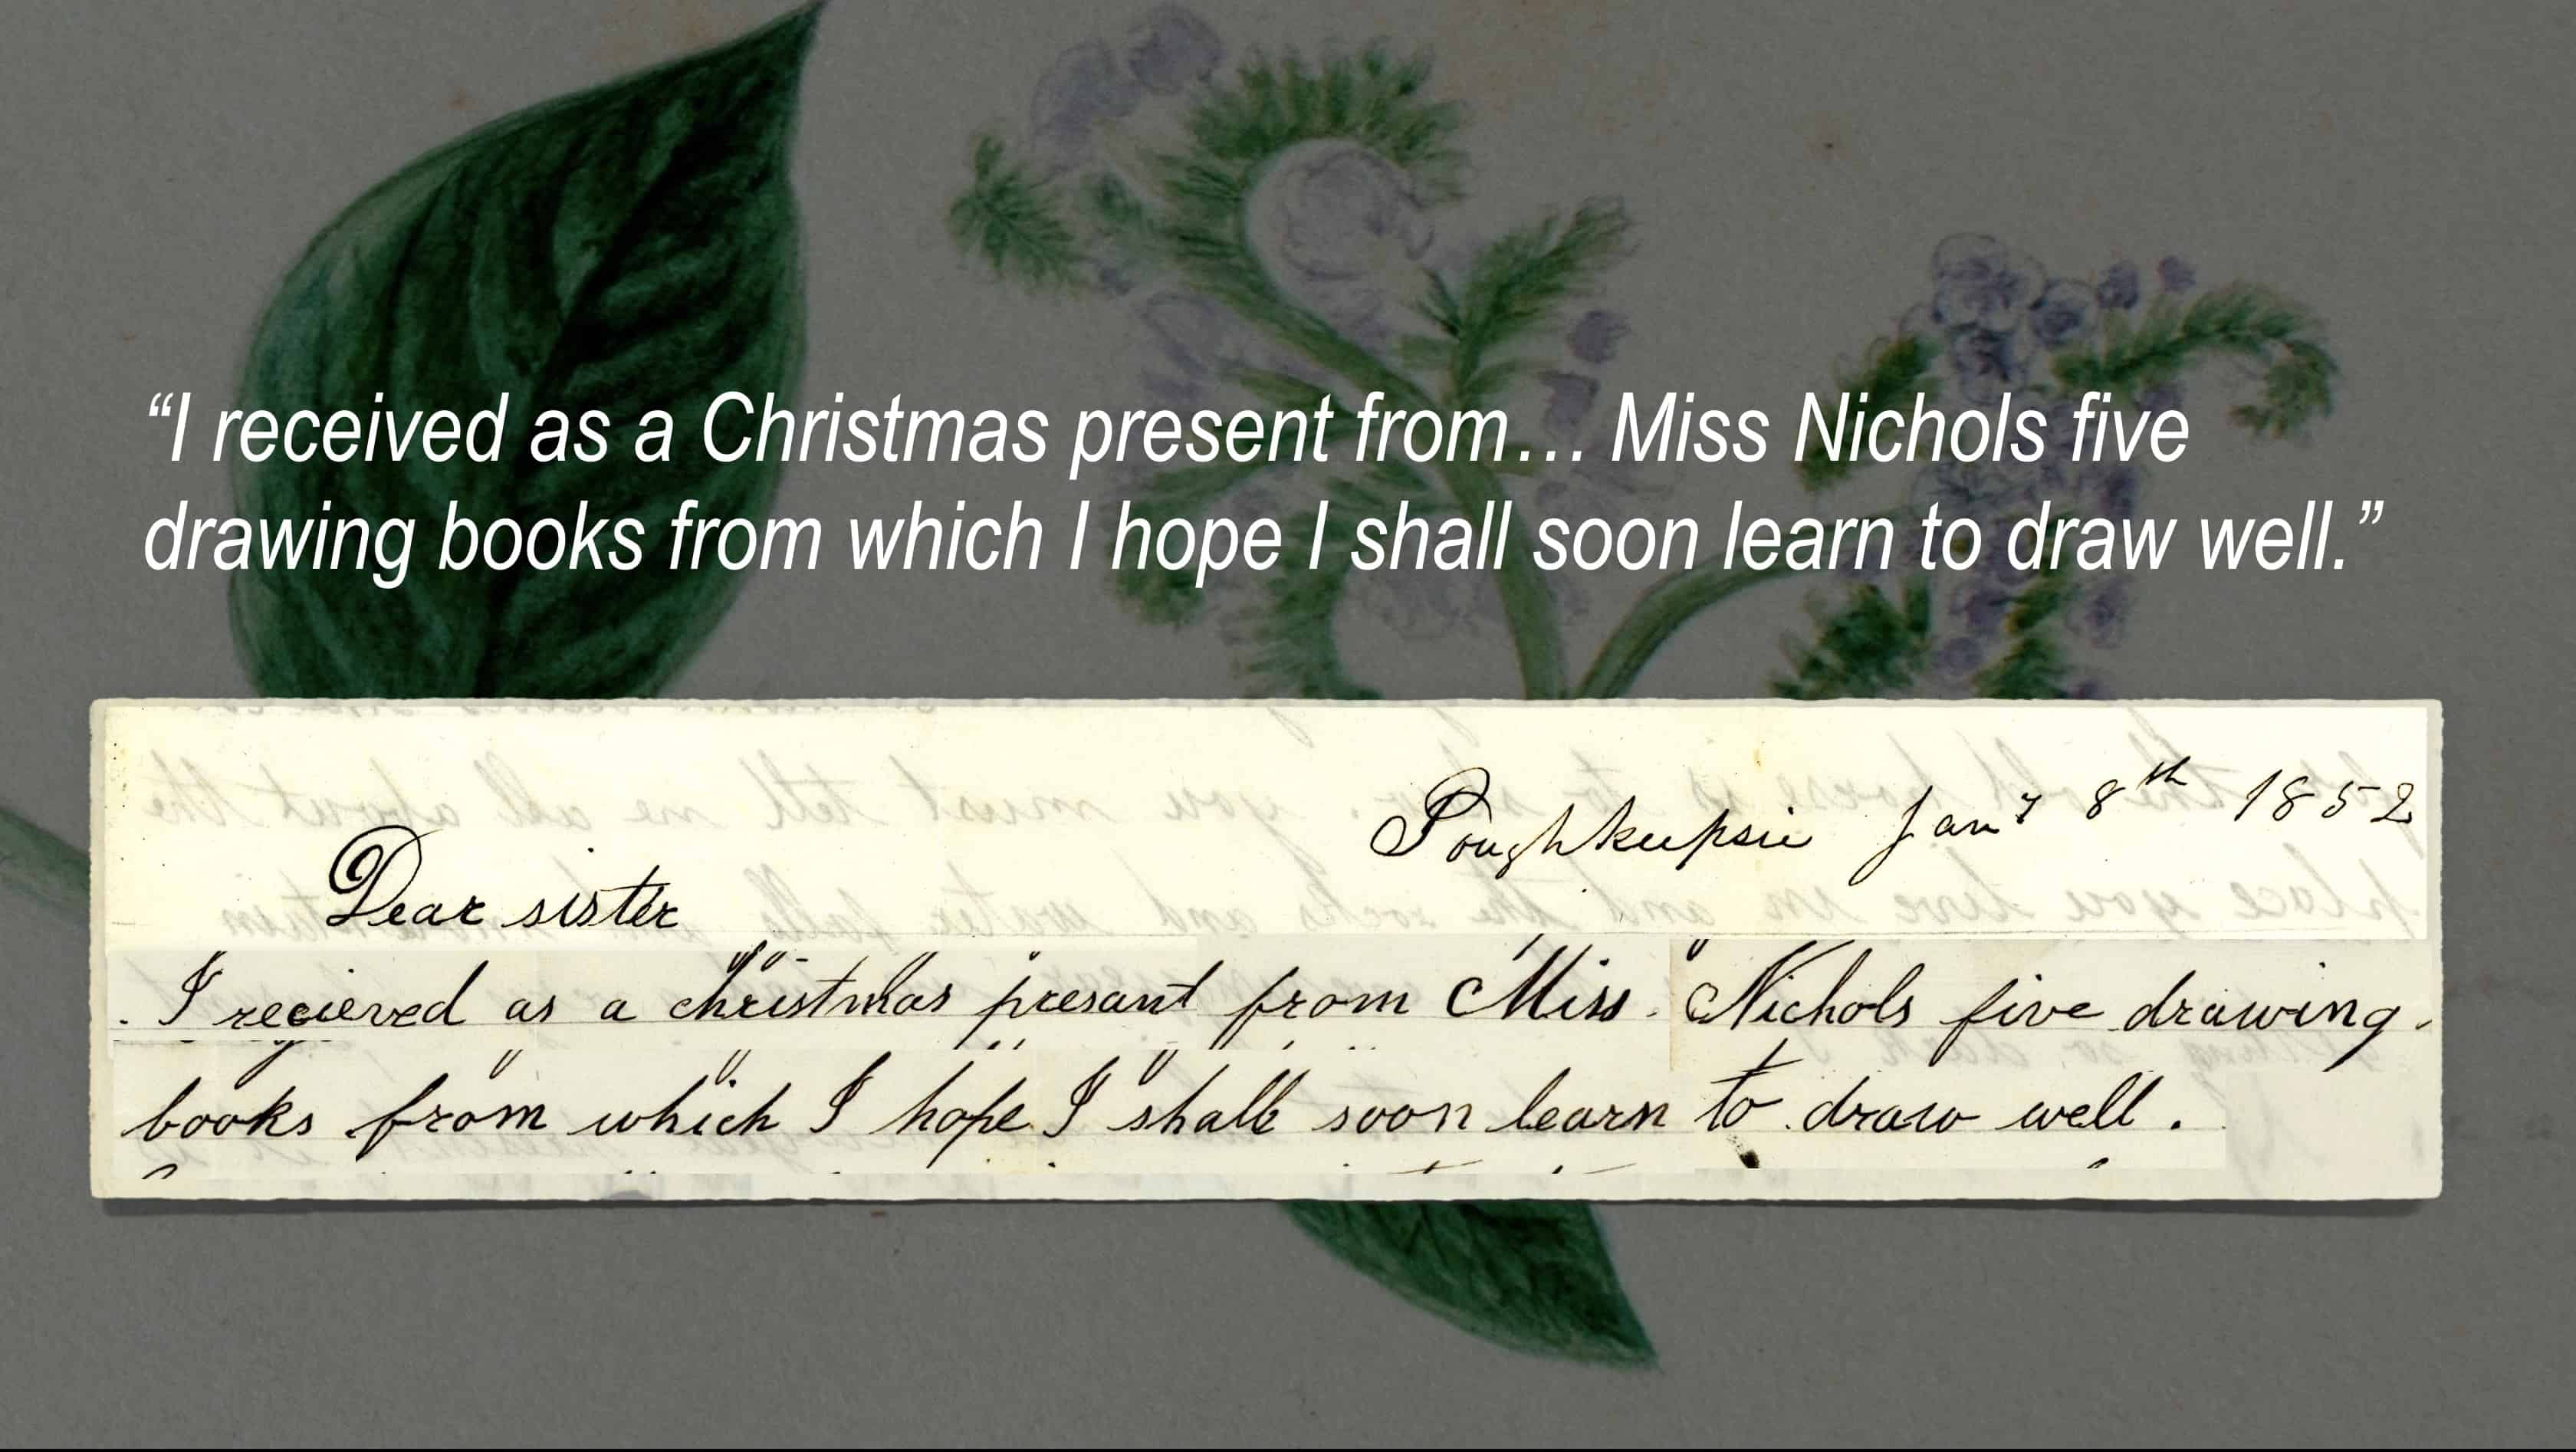 “I received as a Christmas present from… Miss Nichols five
drawing books from which I hope I shall soon learn to draw well.”
Poughkeepsie Jany 8th 1852
Dear sister
I recieved as a christmas presant from Miss Nichols five drawing
books from which I hope I shall soon learn to draw well.